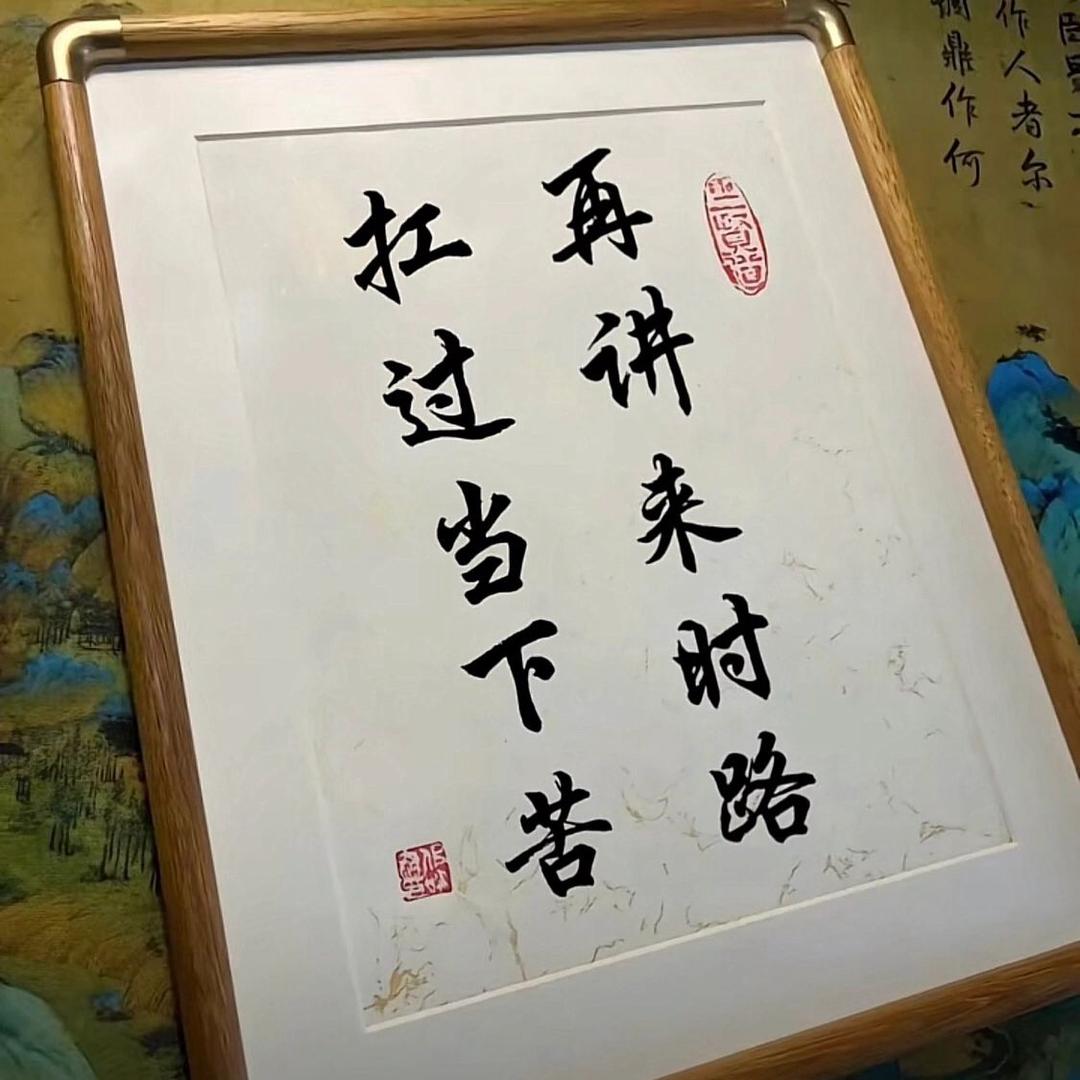 再讲来时路
扛过当下苦
作人者尔
鼎作何